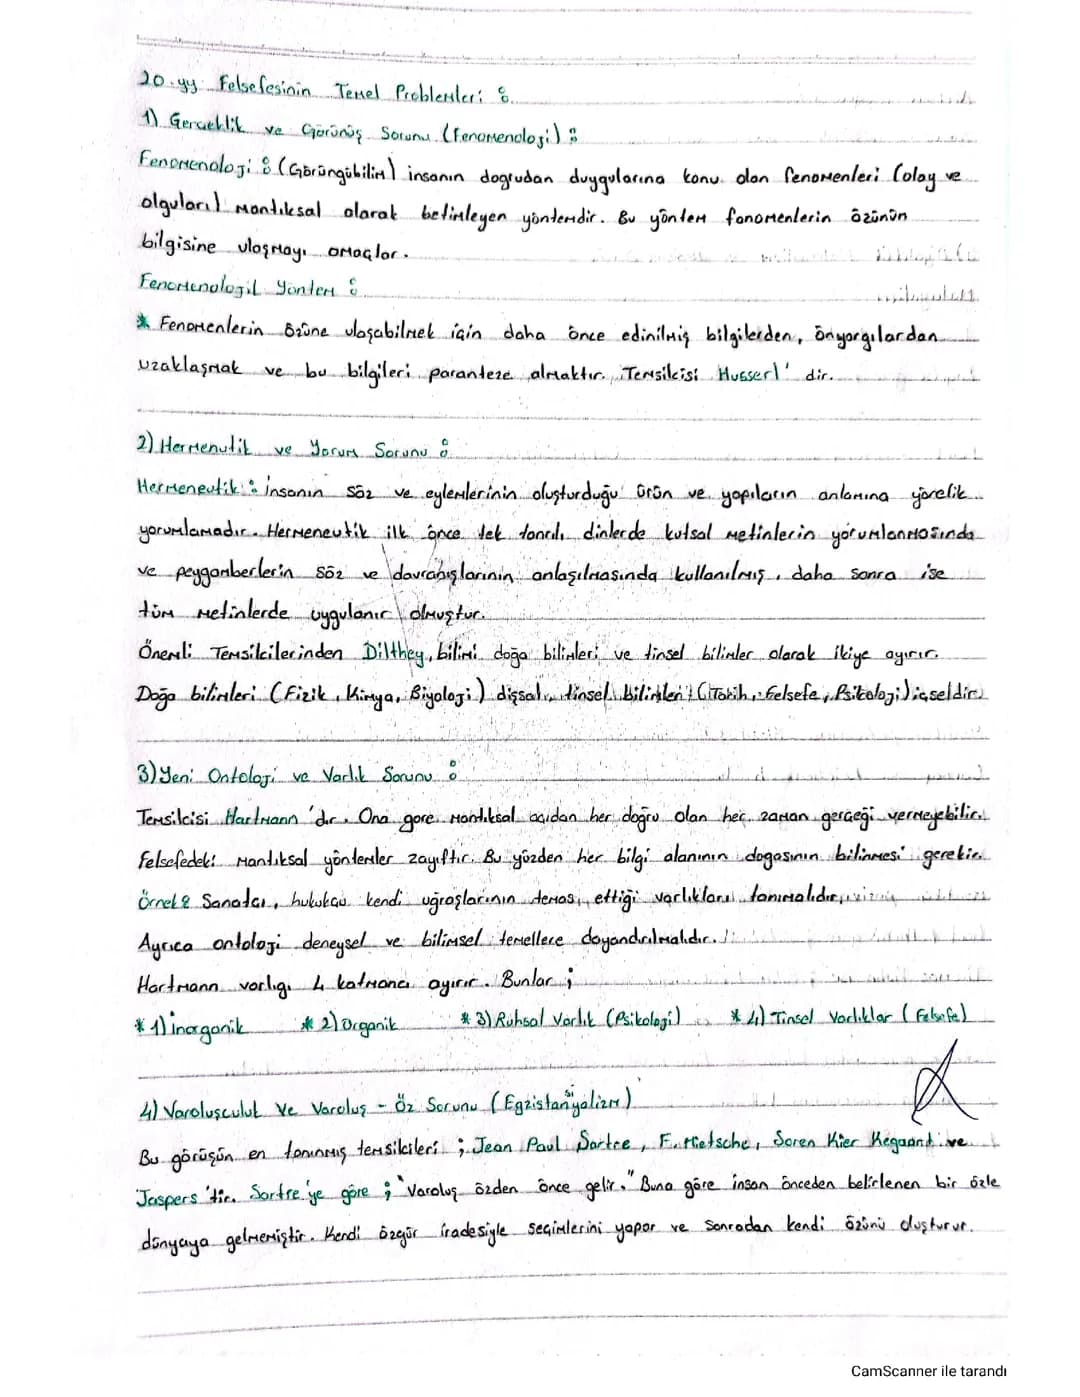 20.yy Felsefesinin Temel Problemleri :
1) Gerçeklik ve Görünüş Sorunu (Fenomenoloji) :
Fenomenoloji : (Görüngübilim) insanın dogrudan duygularına konu olan fenomenleri (olay ve
olguları) mantıksal olarak betimleyen yöntemdir. Bu yöntem fonomenlerin özünün
bilgisine ulaşmayı amaçlar.
Fenomenolojil Yöntem :
* Fenomenlerin özüne ulaşabilmek için daha önce edinilmiş bilgilerden, önyargılardan
uzaklaşmak ve bu bilgileri paranteze almaktır. Temsilcisi Husserl' dir.
2) Hermenutik ve Yorum Sorunu :
Hermeneutik : insanın söz ve eylemlerinin oluşturduğu ürün ve yapıların anlamına yönelik
yorumlamadır. Hermeneutik ilk önce tek tanrılı dinlerde kutsal metinlerin yorumlanmasında
ve peygamberlerin söz ve davranışlarının anlaşılmasında kullanılmış, daha sonra ise
tüm metinlerde uygulanır olmuştur.
Önemli Temsilcilerinden Dilthey, bilimi doğa bilimleri ve tinsel bilimler olarak ikiye ayırır.
Doğa bilimleri (Fizik, Kimya, Biyoloji) dışsal, tinsel bilimler (Tarih, Felsefe, Psikoloji) içseldir.
3) Yeni Ontoloji ve Varlık Sorunu :
Temsilcisi Hartmann 'dır. Ona gore mantıksal açıdan her doğru olan her zaman gerçeği vermeyebilir.
Felsefedeki mantıksal yöntemler zayıftır. Bu yüzden her bilgi alanının dogasının bilinmesi gerekir.
Örnek : Sanatçı, hukukçu kendi uğraşlarının temas ettiği varlıkları tanımalıdır.
Ayrıca ontoloji deneysel ve bilimsel temellere dayandırılmalıdır.
Hartmann varlıgı 4 katmana ayırır. Bunlar ;
* 1) İnorganik * 2) Organik * 3) Ruhsal Varlık (Psikoloji) * 4) Tinsel Varlıklar (Felsefe)
4) Varoluşculuk Ve Varoluş - Öz Sorunu (Egzistansiyalizm)
Bu görüşün en tanınmış temsilcileri ; Jean Paul Sartre, F. Nietsche, Soren Kier Kegaard ve
Jaspers 'tir. Sartre 'ye göre ; "Varoluş özden önce gelir." Buna göre insan önceden belirlenen bir özle
dünyaya gelmemiştir. Kendi özgür iradesiyle seçimlerini yapar ve sonradan kendi özünü oluşturur.
CamScanner ile tarandı